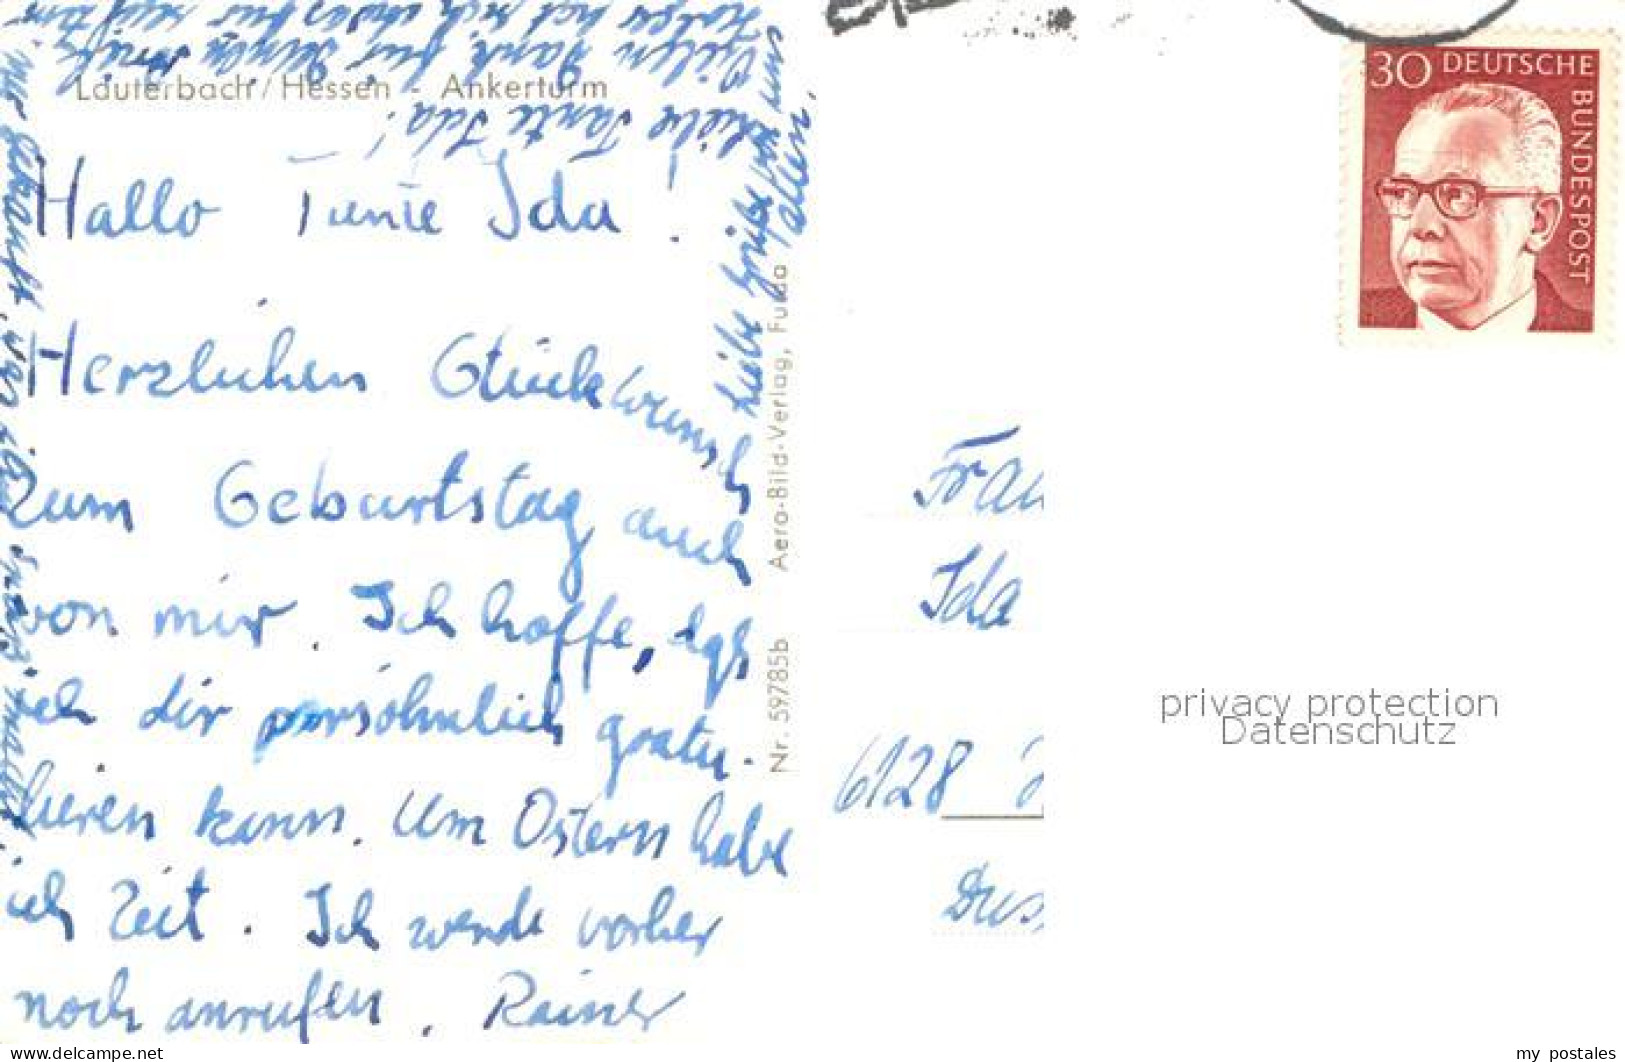 Lauterbach/Hessen - Ankerturm
Hallo Tante Ida!
Herzlichen Glückwunsch
zum Geburtstag auch
von mir. Ich hoffe, daß
ich dir persöhnlich gratu-
lieren kann. Um Ostern habe
ich Zeit. Ich werde vorher
noch anrufen. Rainer
Liebe Tante Ida!
Vielen Dank für
Liebe Grüße
Nr. 59785b Aero-Bild-Verlag, Fulda
30 DEUTSCHE
BUNDESPOST
Frau
Ida
6128
privacy protection
Datenschutz
www.delcampe.net
my_postales